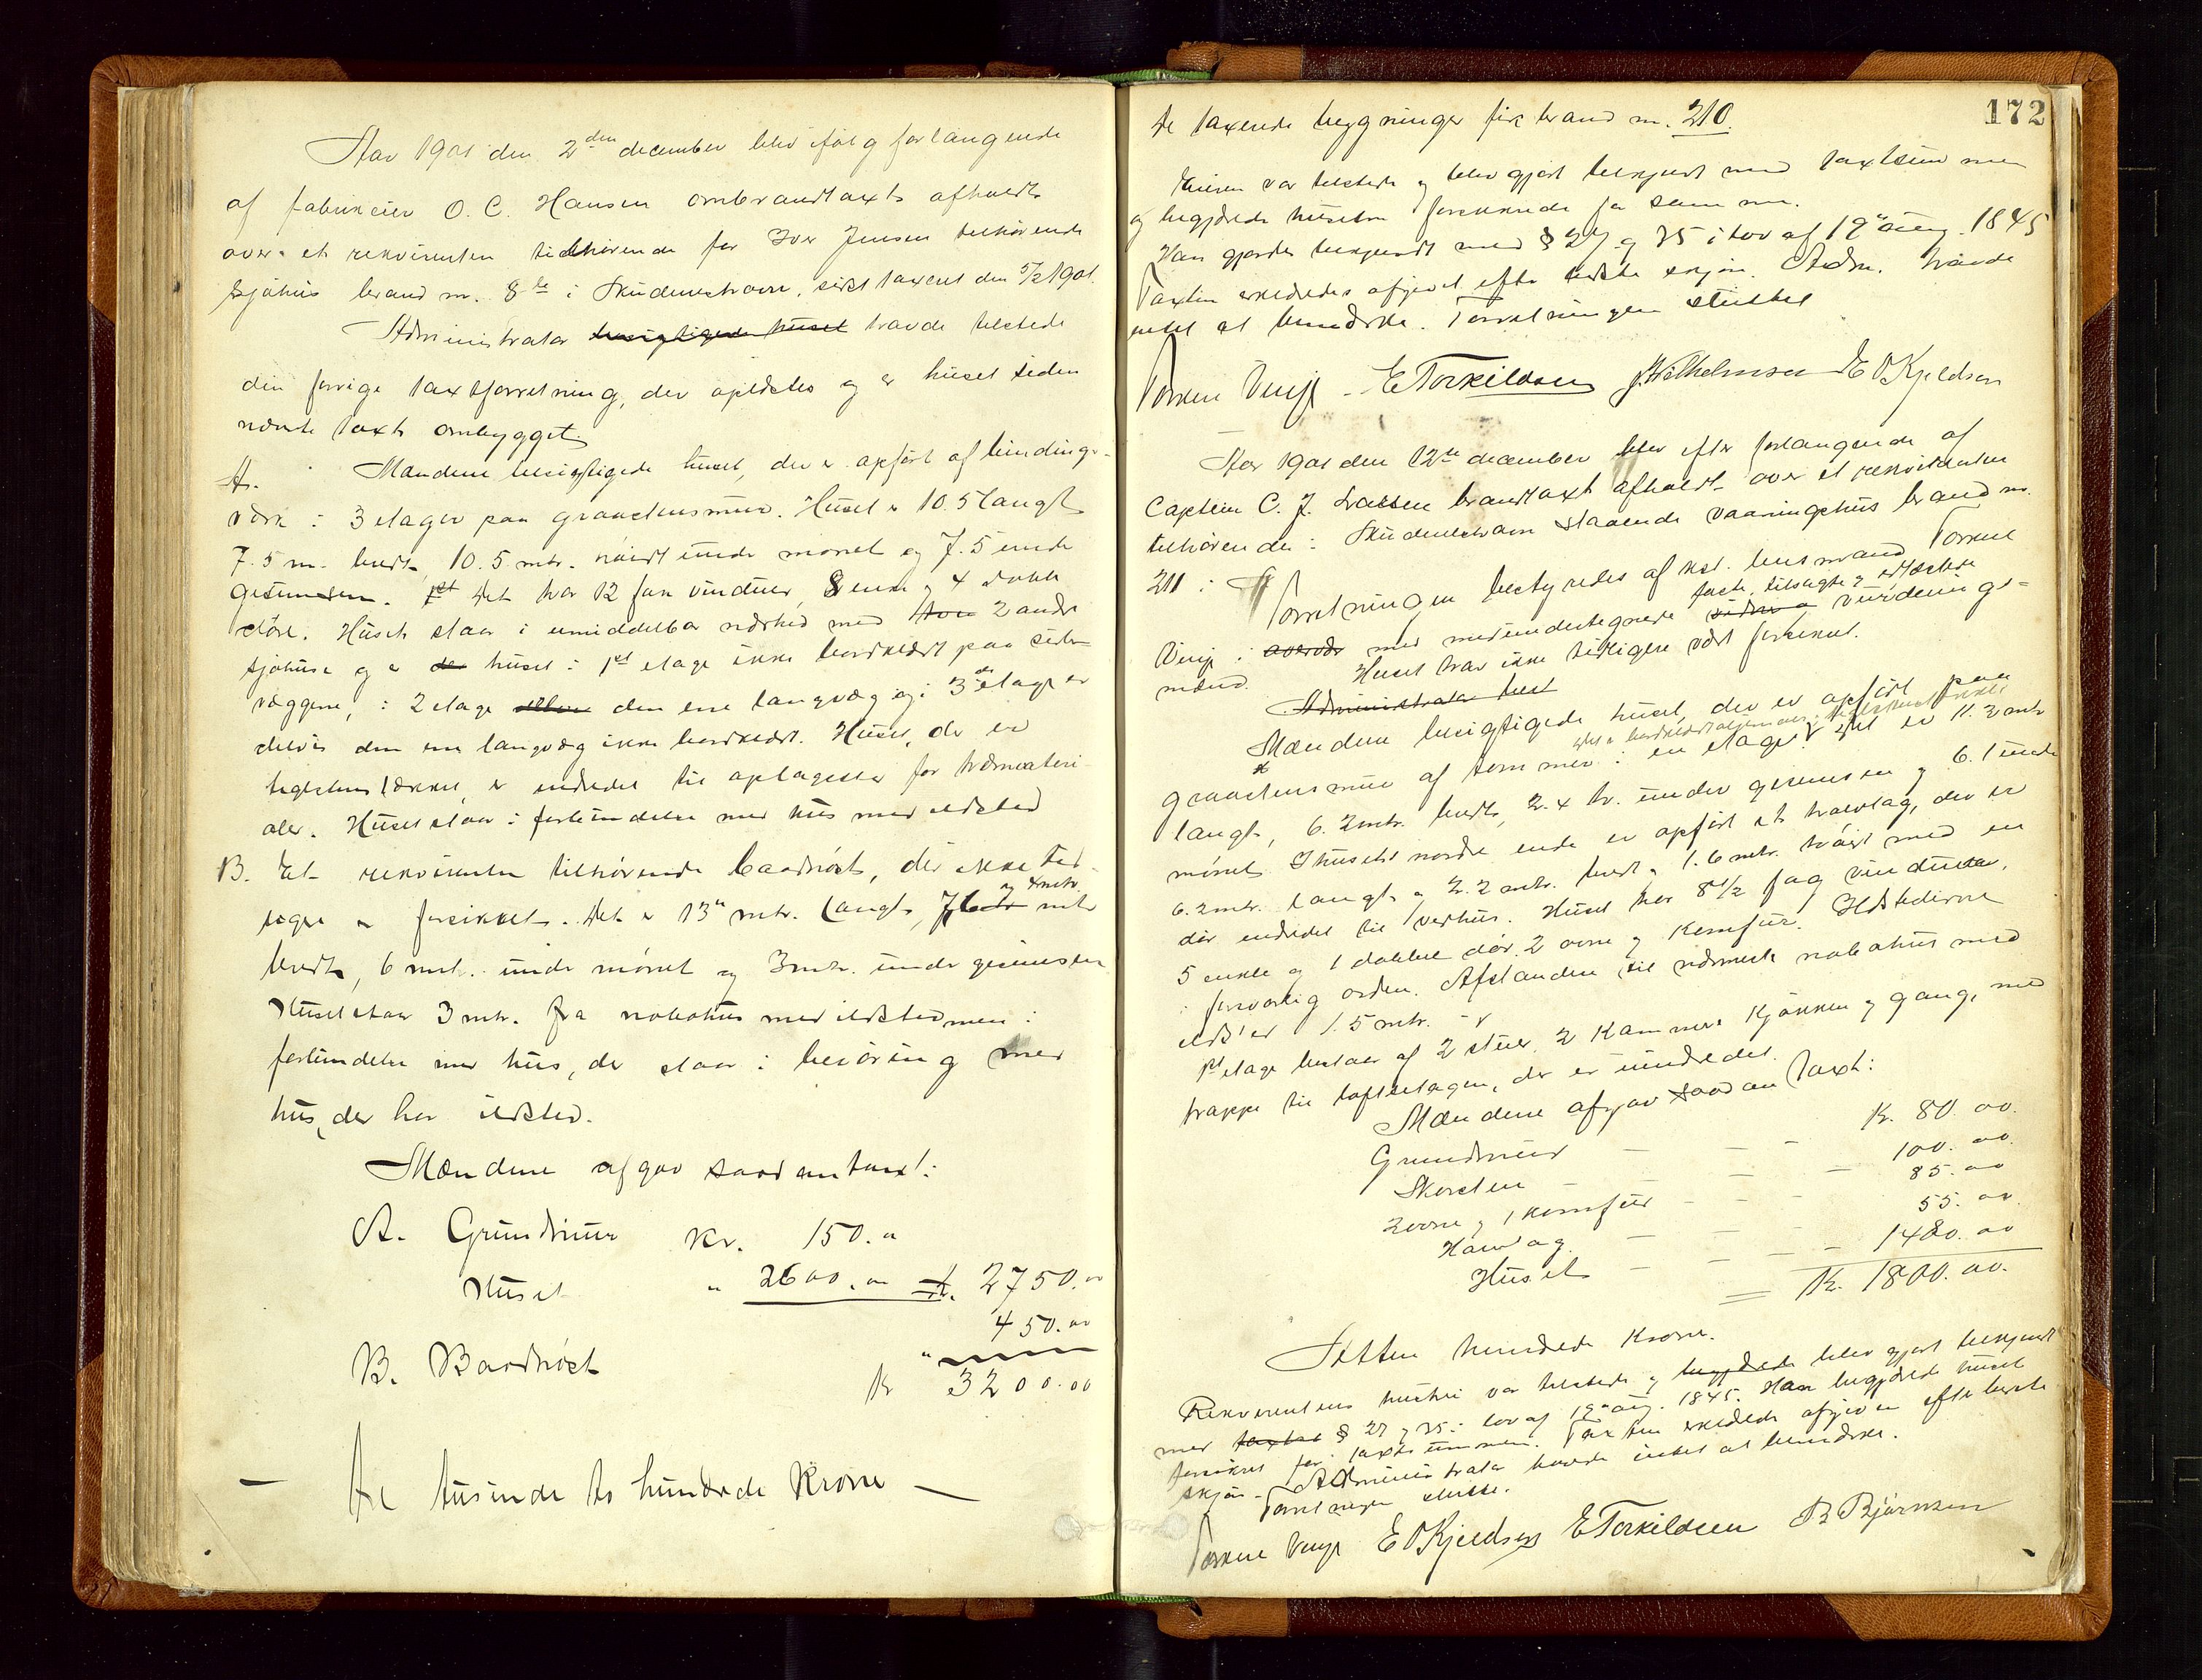 Aar 1901 den 2den december blev ifølg forlangende
af fabrikeier O. C. Hansen ombrandtaxt afholdt
over et rekvirenten tilhørende før Iver Jensen tilhørende
sjøhus brand nr. 8de i Skudeneshavn, sidst taxeret den 5/2 1901.
Administrator besigtigede huset havde tilstede
den forrige taxtforretning, der oplæstes og er huset siden
nævnte taxt ombygget.
A. Mændene besigtigede huset, der er opført af bindings-
værk i 3 etager paa graastensmur. Huset er 10.5 langt
7.5 m. bredt, 10.5 mtr. høidt unde mønet og 7.5 unde
gesimsen. Det har 12 fag vinduer, 8 enk. og 4 dobb.
døre. Huset staar i umiddelbar nærhed med 2 andre
sjøhuse og er huset i 1st etage ikke bordklædt paa side-
væggene, i 2 etage den ene langvæg og i 3de etage er
delvis den ene langvæg ikke bordklædt. Huset, der er
teglstenstækket, er indredet til oplagssted for træmateri-
aler. Huset staar i forbindelse med hus med ildsted
B. Et rekvirenten tilhørende baadnøst, der ikke tid-
ligere er forsikret. Det er 13 mtr. langt, 7 mtr
bredt, 6 mtr. unde mønet og 3 mtr. unde gesimsen
Huset staar 3 mtr. fra nabohus med ildsted men i
forbindelse med hus, der staar i berøring med
hus, der har ildsted.
Mændene afgav saadan taxt:
A. Grundmur Kr. 150.00
Huset " 2600.00 Kr. 2750.00
B. Baadnøst " 450.00
Kr 3200.00
— Tre tusinde to hundrede Kroner —
172
De taxerede bygninger fik brand nr. 210.
Eieren var tilstede og blev gjort bekjendt med taxtsummen
og begjærede husene forsikrede for samme.
Han gjordes bekjendt med § 27 og 35 i lov af 19de aug. 1845
Taxten erklæredes afgivet efter bedste skjøn. Adm. havde
intet at bemærke. Forretningen sluttet
Torkel Vinje - E Torkildsen J. Wilhelmsen E O Kjeldsen
Aar 1901 den 12te december blev efter forlangende af
Captein C. J. Larsen brandtaxt afholdt over et rekvirenten
tilhørende i Skudeneshavn staaende vaaningshus brand nr.
211. Forretningen bestyredes af kst. lensmand Torkel
Vinje i overvær med medundertegnede faste, tilsagte og edfæstede vurderings-
mænd. Huset har ikke tidligere vært forsikret.
Administrator hest
Mændene besigtigede huset, der er opført paa
graastensmur af tømmer i en etage. Det er 11.2 mtr
langt, 6.2 mtr. bredt, 2.4 tr. under gesimsen og 6.1 unde
mønet. I husets nordre ende er opført et halvtag, der er
6.2 mtr. langt og 2.2 mtr. bredt og 1.6 mtr. høigt med en
dør indredet til vedhus. Huset har 8 1/2 fag vinduer,
5 enkle og 1 dobbel dør. 2 ovne og komfur. Ildstederne
i forsvarlig orden. Afstanden til nærmeste nabohus med
ilds' er 1.5 mtr.
1st etage bestaar af 2 stuer, 2 kammers kjøkken og gang, med
trappe til loftsetagen, der er uindredet.
Mændene afgav saadan taxt:
Grundmur — — - Kr. 80.00
Skorsten — — 100.00
2 ovne og 1 komfur - - - 85.00
Halvtag — — 55.00
Huset — — — 1480.00
= Kr. 1800.00.
Atten hundrede Kroner.
Rekvirentens hustru var tilstede og begjærede blev gjort bekjendt
med taxtst § 27 og 35 i lov af 19de aug. 1845. Han begjærede huset
forsikret for taxtsummen. Taxten erklæredes afgiven efter bedste
skjøn - Administrator havde intet at bemærke.
Forretningen sluttet.
Torkel Vinje E O Kjeldsen E Torkildsen B Bjørnsen